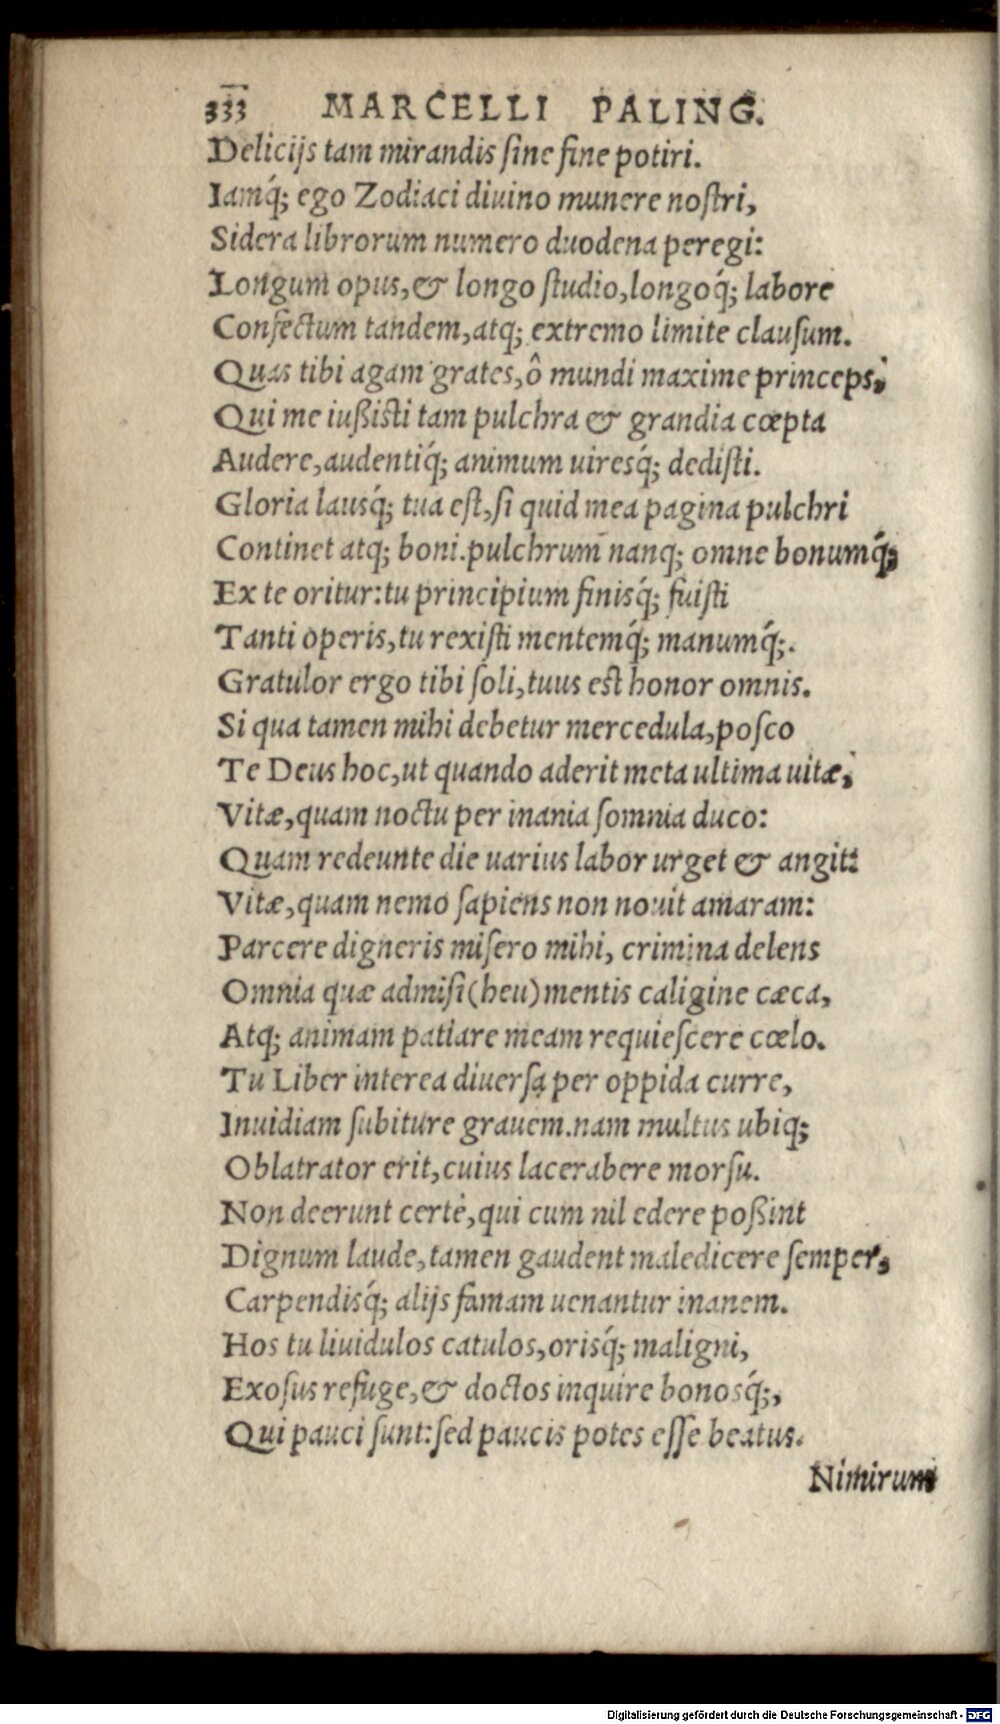 333 MARCELLI PALING.
Delicijs tam mirandis ſine fine potiri.
Iamq́; ego Zodiaci diuino munere noſtri,
Sidera librorum numero duodena peregi:
Longum opus, & longo ſtudio, longoq́; labore
Confectum tandem, atq; extremo limite clauſum.
Quas tibi agam grates, ô mundi maxime princeps,
Qui me iußiſti tam pulchra & grandia cœpta
Audere, audentiq́; animum uiresq́; dediſti.
Gloria lausq́; tua eſt, ſi quid mea pagina pulchri
Continet atq; boni. pulchrum nanq; omne bonumq́;
Ex te oritur: tu principium finisq́; fuiſti
Tanti operis, tu rexiſti mentemq́; manumq́;.
Gratulor ergo tibi ſoli, tuus eſt honor omnis.
Si qua tamen mihi debetur mercedula, poſco
Te Deus hoc, ut quando aderit meta ultima uitæ,
Vitæ, quam noctu per inania ſomnia duco:
Quam redeunte die uarius labor urget & angit:
Vitæ, quam nemo ſapiens non nouit amaram:
Parcere digneris miſero mihi, crimina delens
Omnia quæ admiſi (heu) mentis caligine cæca,
Atq; animam patiare meam requieſcere cœlo.
Tu Liber interea diuerſa per oppida curre,
Inuidiam ſubiture grauem. nam multus ubiq;
Oblatrator erit, cuius lacerabere morſu.
Non deerunt certè, qui cum nil edere poßint
Dignum laude, tamen gaudent maledicere ſemper,
Carpendisq́; alijs famam uenantur inanem.
Hos tu liuidulos catulos, orisq́; maligni,
Exoſus refuge, & doctos inquire bonosq́;,
Qui pauci ſunt: ſed paucis potes eſſe beatus.
Nimirum
Digitalisierung gefördert durch die Deutsche Forschungsgemeinschaft - DFG